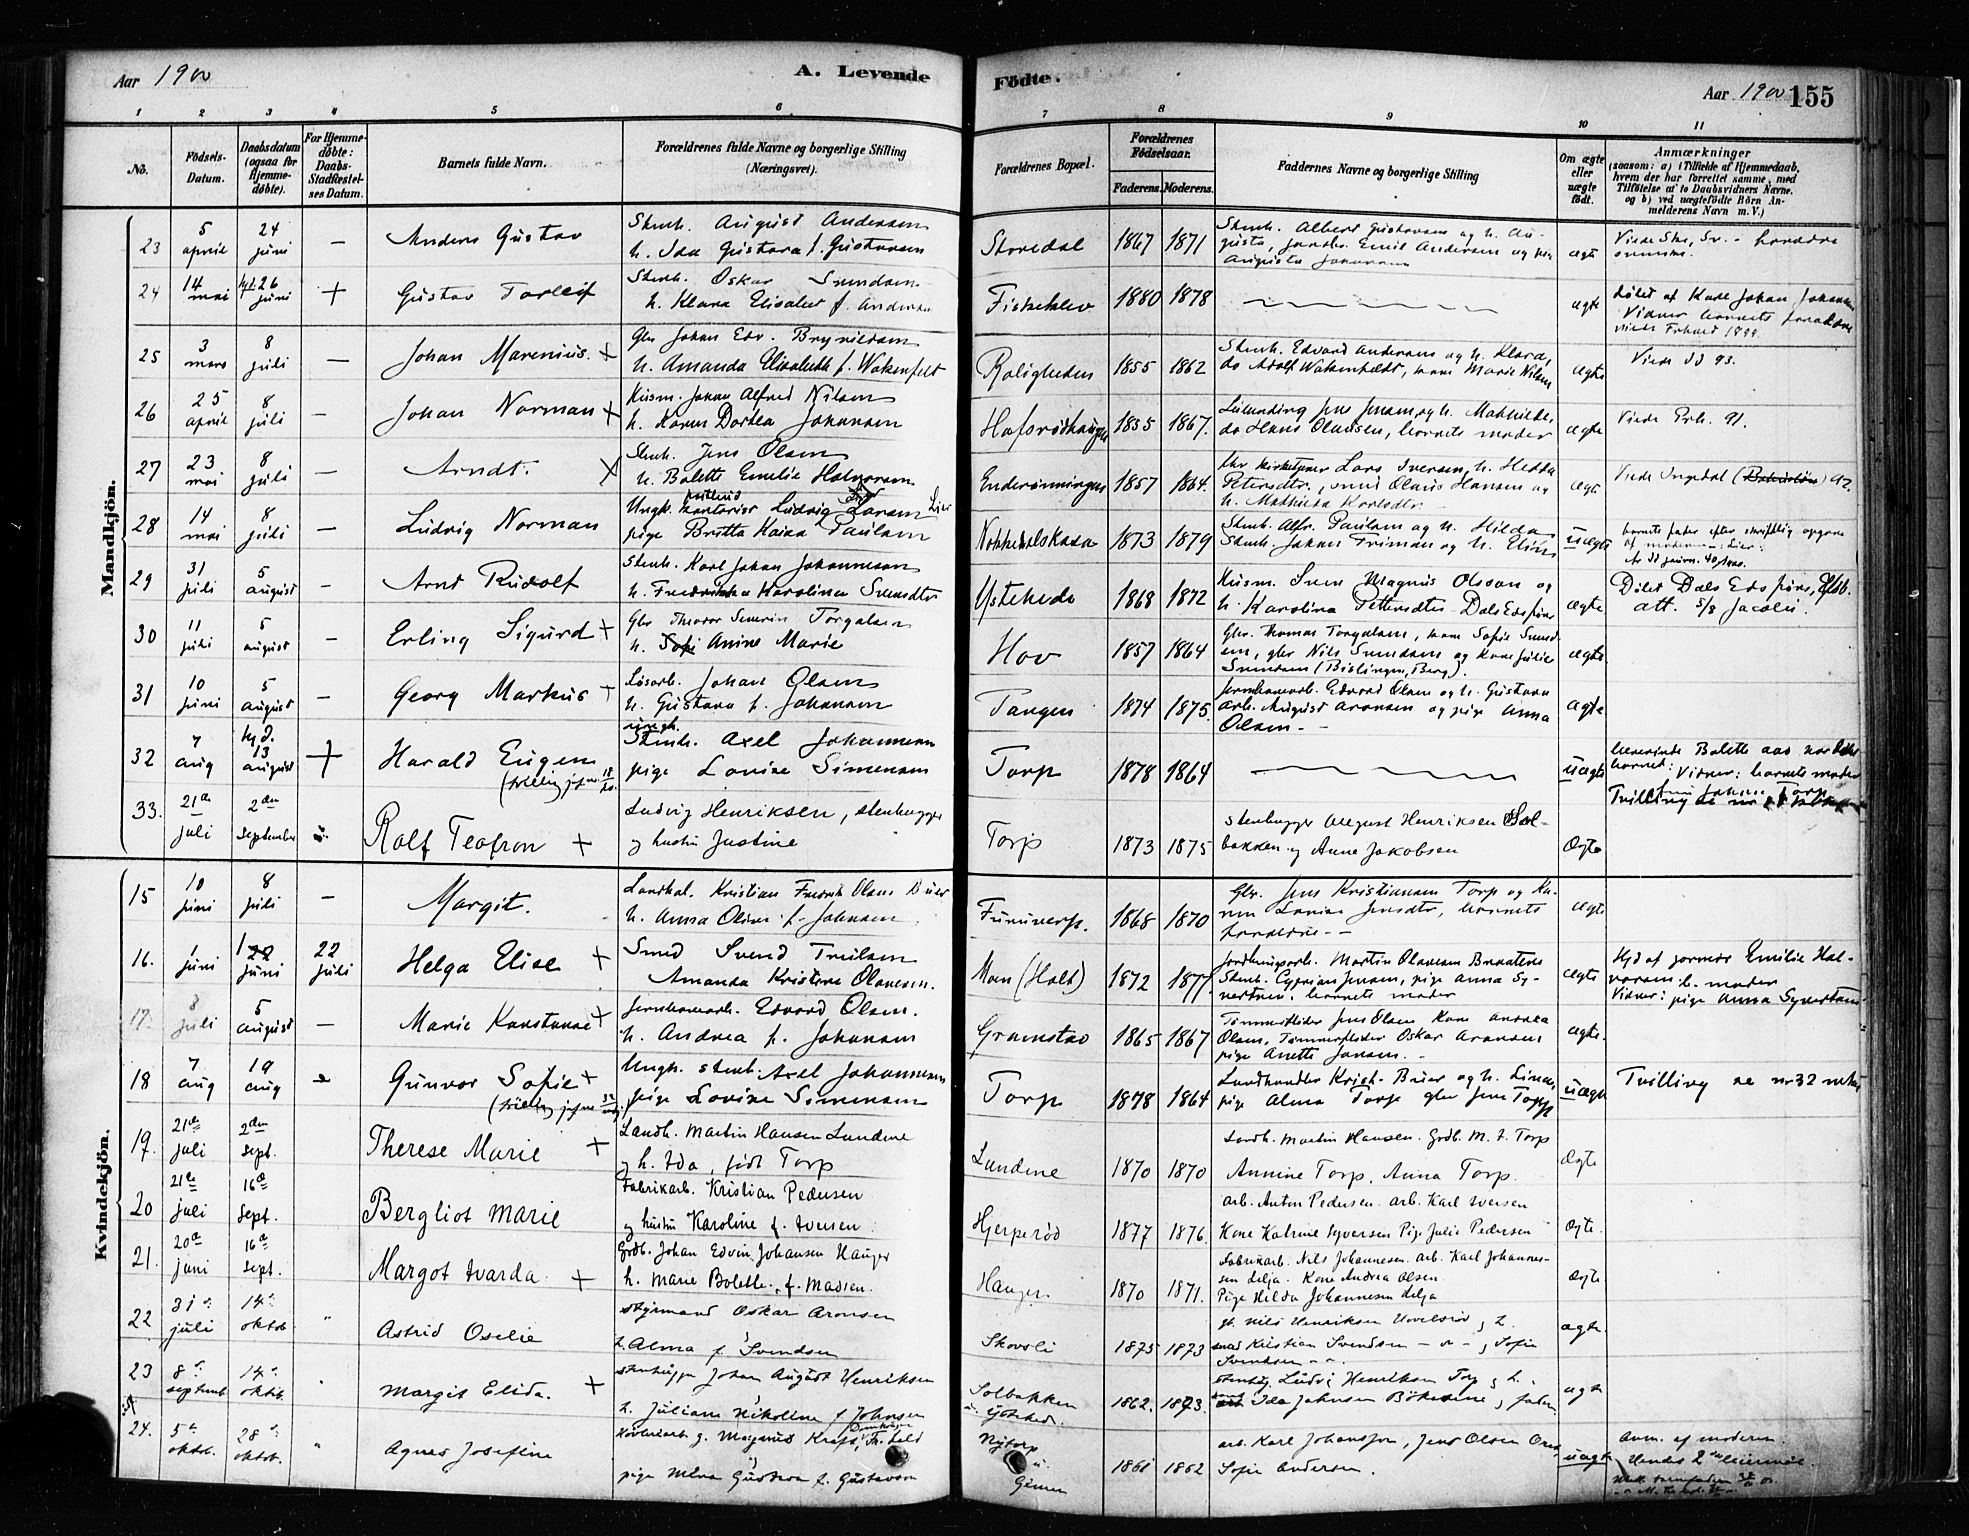 Aar 1900
A. Levende
Födte.
Aar 1900 155
1 2 3 4 5 6 7 8 9 10 11
No.
Födsels-
Datum.
Daabsdatum
(ogsaa for
Hjemme-
döbte).
For Hjemme-
döbte:
Daabs-
Stadfæstel-
ses Datum.
Barnets fulde Navn.
Forældrenes fulde Navne og borgerlige Stilling
(Næringsvei).
Forældrenes Bopæl.
Forældrenes
Födselsaar.
Faderens. Moderens.
Faddernes Navne og borgerlige Stilling
Om ægte
eller
uægte
födt.
Anmærkninger
(saasom: a) i Tilfælde af Hjemmedaab,
hvem der har forrettet samme, med
Tilföielse af to Daabsvidners Navne.
og b) ved uægtefödte Börn An-
melderens Navn m. V.)
Mandkjön.
23 5 april 24 juni — Anders Gustav
Stenh. August Andersen
h. Ida Gustava f. Gustavsen
Storedal 1867 1871
Stenh. Albert Gustavsen og h. Au-
gusta, Emil Andersen og
Augusta Johansen
ægte
24 14 mai hjd. 26 juni + Gustav Torleif
Stenh. Oskar Svendsen
h. Klara Elisabet f. Andersen
Fiskeklev 1880 1878
ægte
Döbt af Karl Johan Johansen
Vidner barnets forældre
25 3 mars 8 juli — Johan Marenius +
Gbr Johan Edv. Brynildsen
h. Amanda Elisabeth f. Wakenfelt
Roligheden 1855 1862
Stenh. Edvard Andersen og h. Klara,
do Adolf Wakenfeldt, Marie Nilsen
ægte
Viede 93.
26 25 april 8 juli — Johan Norman +
Husm. Johan Alfred Nilsen
h. Karen Dortea Johansen
Hafsrödhaugen 1855 1867.
Jens Jensen, og h. Mathilde,
do Hans Olaussen, barnets moder
ægte
Viede Prh. 91.
27 23 mai 8 juli — Arndt. +
Stenh. Jens Olsen
h. Bolette Emelie Halvorsen
Enderönningen 1857 1864.
Lars Iversen, h. Hedda
Petersdtr., Olaus Hansen og
h. Mathilda Karlsdtr
ægte
Viede Ingedal 92.
28 14 mai 8 juli — Ludvig Norman
Ungk. kontorist Ludvig Larsen Lier
pige Britta Kaisa Paulsen
1873 1879
Stenh. Alfr. Paulsen og h. Hilda
Stenh. Johan Friman og h. Elin
uægte
barnets fader efter skriftlig opgave
af moderen — : Lier:
29 31 juli 5 august — Arnt Rudolf
Stenh. Karl Johan Johannesen
h. Fredrikka Karolina Svendsdtr
Ystehede 1868 1872
Husm. Sven Magnus Olsson og
h. Karolina Pettersdtr Dals Edsfjöre
ægte
Döbt Dals Edsfjöre, Elfsb.
att. 5/8 Jacobi.
30 11 juli 5 august — Erling Sigurd +
Gbr Theodor Severin Torgalsen
h. Anine Marie
Hov 1857 1864
Gbr. Thomas Torgalsen, Sofie Svend-
sen, gbr Nils Svendsen og Kone Julie
Svendsen (Bislingen, Berg).
ægte
31 10 juni 5 august — Georg Markus +
Lösarb. Johan Olsen
h. Gustava f. Johansen
Tangen 1874 1875
Jernbanearb. Edvard Olsen og h. Gustava
arb. August Aronsen og pige Anna
Olsen —
ægte
32 7 aug hjd. 13 august + Harald Eugen
ungk.
Stenh. Axel Johannesen
pige Lovise Simensen
Torp 1878 1864
uægte
Bolette
barnet: Vidner: barnets moder
33. 21de juli 2den september Rolf Teofron +
Ludvig Henriksen, stenhugger
og hustru Justine
Torp 1873 1875
Stenhugger August Henriksen Sol-
bakken og Anne Jakobsen
Ægte
Kvindekjön.
15 10 juni 8 juli — Margit.
Landhdl. Kristian Fredrik Olsen Buer
h. Anna Oline f. Johnsen
1868 1870
Gbr. Jens Kristiansen Torp og Ka-
ren Lovise Jensdtr, barnets
forældre —
ægte
16. 1 juni juni 22 juli Helga Elise +
Smed Svend Truilsen
Amanda Kristine Olavesen.
Moen (Holt) 1872 1877
Martin Olavesen Braatene
Stenh. Cyprian Jensen, pige Anna Sy-
vertsen, barnets moder
ægte
Hjd af jormor Emilie Hal-
vorsen b. moder
Vidner: pige Anna Syvertsen
17. 8 juli 5 august — Marie Konstanse +
Jernbanearb. Edvard Olsen.
h. Andrea f. Johansen
Grönstad 1865 1867
Tömmerfl. Jens Olsen Kone Andrea
Olsen, Tömmerfl. Oskar Aronsen
pige Anette Jansen. —
ægte.
18 7 aug 19 aug Gunvor Sofie +
Ungk. stenh. Axel Johannesen
pige Lovise Simensen
Torp 1878 1864
Landhandler Krist. Buer og h. Lina,
pige Alma Torp gbr Jens Torp
uægte
Tvilling se nr 32 mkj
19. 21de juli 2den Sept. Therese Marie +
Landh. Martin Hansen Lundene
og h. Ida, födt Torp
Lundene 1870 1870
Landh. Martin Hansen. Grdb. M. L. Torp
Annine Torp, Anna Torp.
Ægte
20 21de juli 16de Sept. Bergliot Marie
Fabrikarb. Kristian Pedersen
og hustru Karoline f. Iversen
Hjerperöd 1877 1876.
arb. Anton Pedersen. arb. Karl Iversen
Kone Katrine Syversen Pige Julie Pedersen
Ægte.
21. 20de juni 16de Sept. Margot Ivarda. +
Grdb. Johan Edvin Johansen Hauger
h. Marie Bolette. f. Madsen.
Hauger. 1870 1871.
Fabrikarb. Nils Johannesen. arb. Karl Johannes-
sen Kone Andrea Olsen.
Pige Hilda Johannesen
Ægte
22 31 juli 14 oktob. " Astrid Oselie
Styrmand Oskar Aronsen
h. Alma f. Svendsen
Skovsli 1875 1873
Nils Henriksen
Kristian Svendsen — , Sofie
Svendsen
ægte.
23 8 septemb. 14 oktb. " Margit Elida. +
Stenhugger Johan August Henriksen
h. Juliane Nikoline f. Johnsen
Solbakken
Ystehed. 1862. 1873.
Ludvig Henriksen Torp og h.
Ida Johnsen , fader
ægte
24. 5 oktb. 28 oktob. " Agnes Josefine
Magnus Kraft, Fr.hald
pige Gustava f. Gustavsen
Nytorp
1861 1862
arb. Karl Johansson, Jens Olsen
Sofie Andersen.
uægte
Anm. af moderen.
Hendes 2